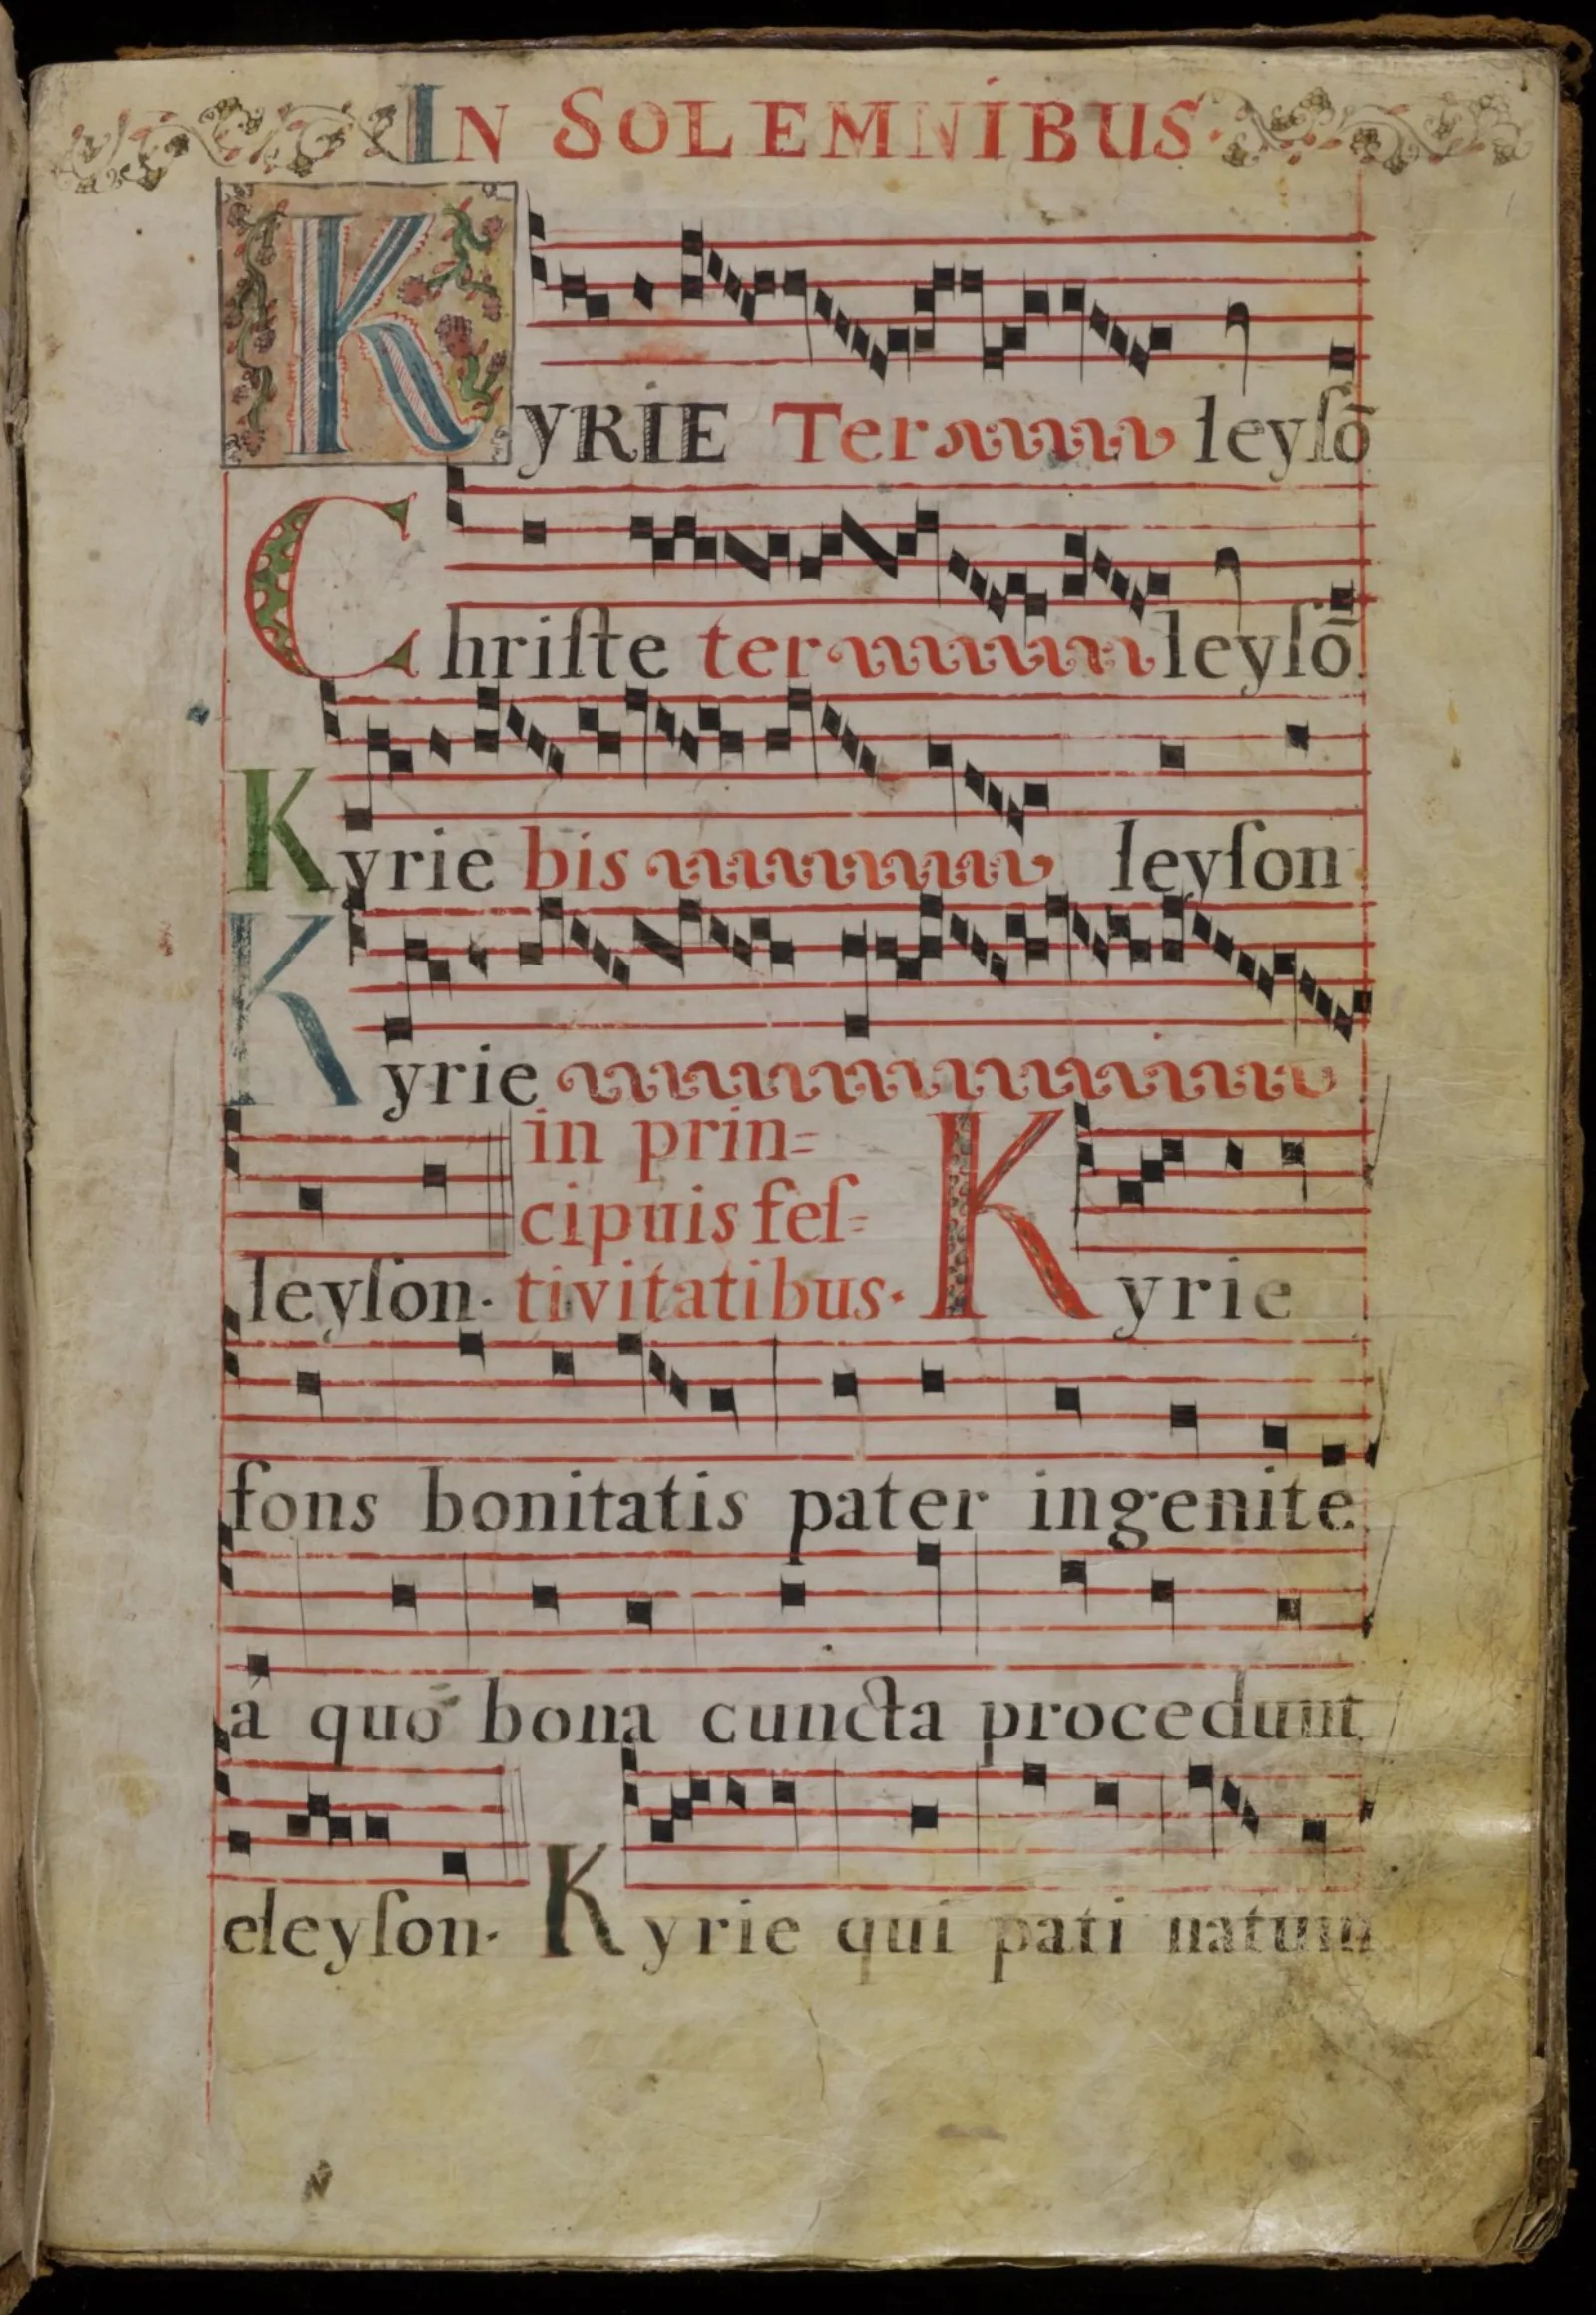 IN SOLEMNIBUS.
KYRIE Ter leyſõ
Chriſte ter leyſõ
Kyrie bis leyſon
Kyrie
leyſon. in prin=
cipuis feſ=
tivitatibus. Kyrie
fons bonitatis pater ingenite
à quo bona cuncta procedunt
eleyſon. Kyrie qui pati natum